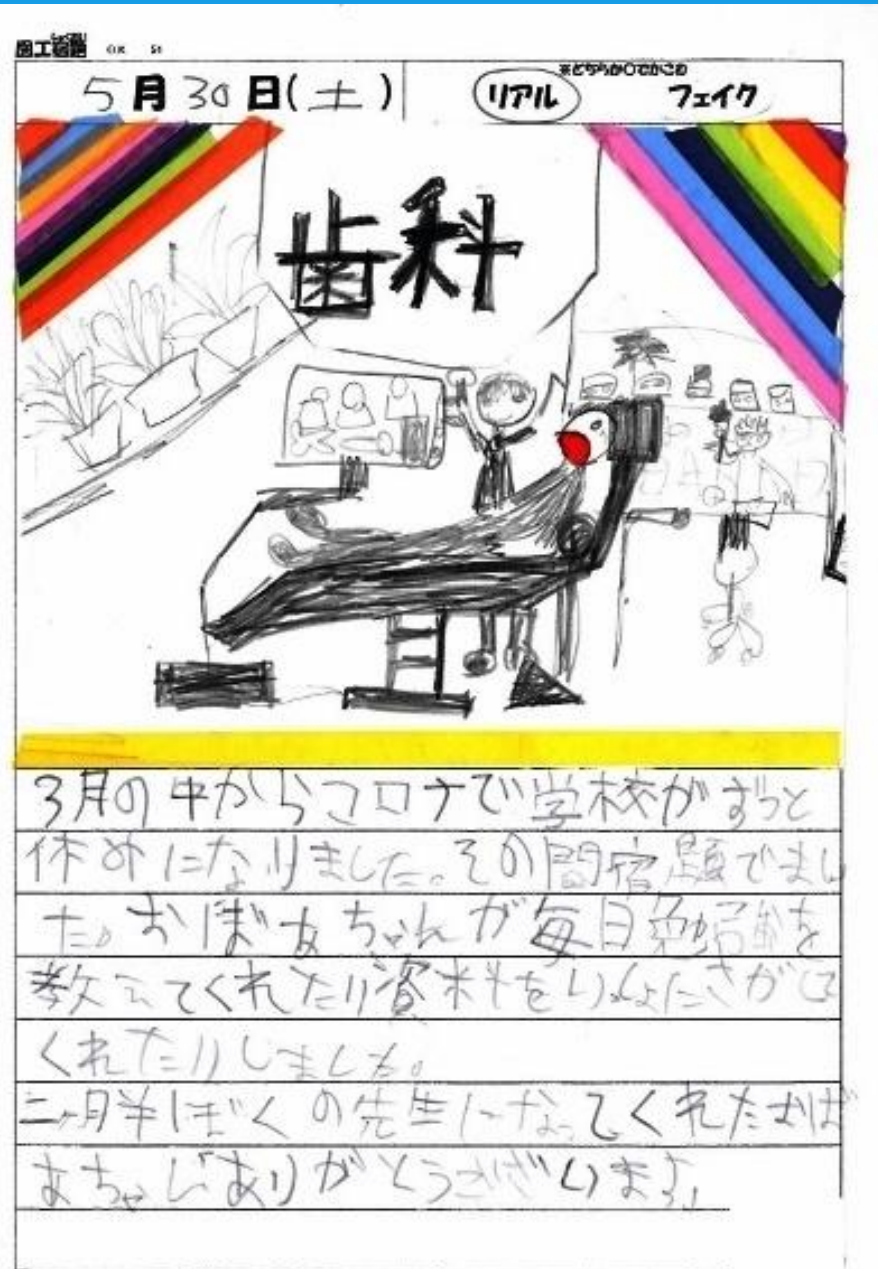 図工宿題
5月30日(土)
※どちらか○でかこむ
リアル フェイク
歯科
3月の中からコロナで学校がずっと
休みになりました。その間宿題でまし
た。おばあちゃんが毎日勉強を
教えてくれたり資料をいっしょにさがして
くれたりしました。
二ヶ月半ぼくの先生になってくれたおば
あちゃんありがとうございます。